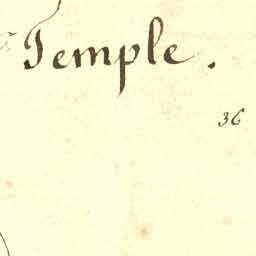 Temple.
36